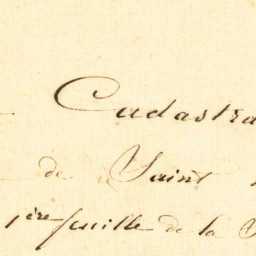 Cadastra
de Saint
1ère feuille de la S